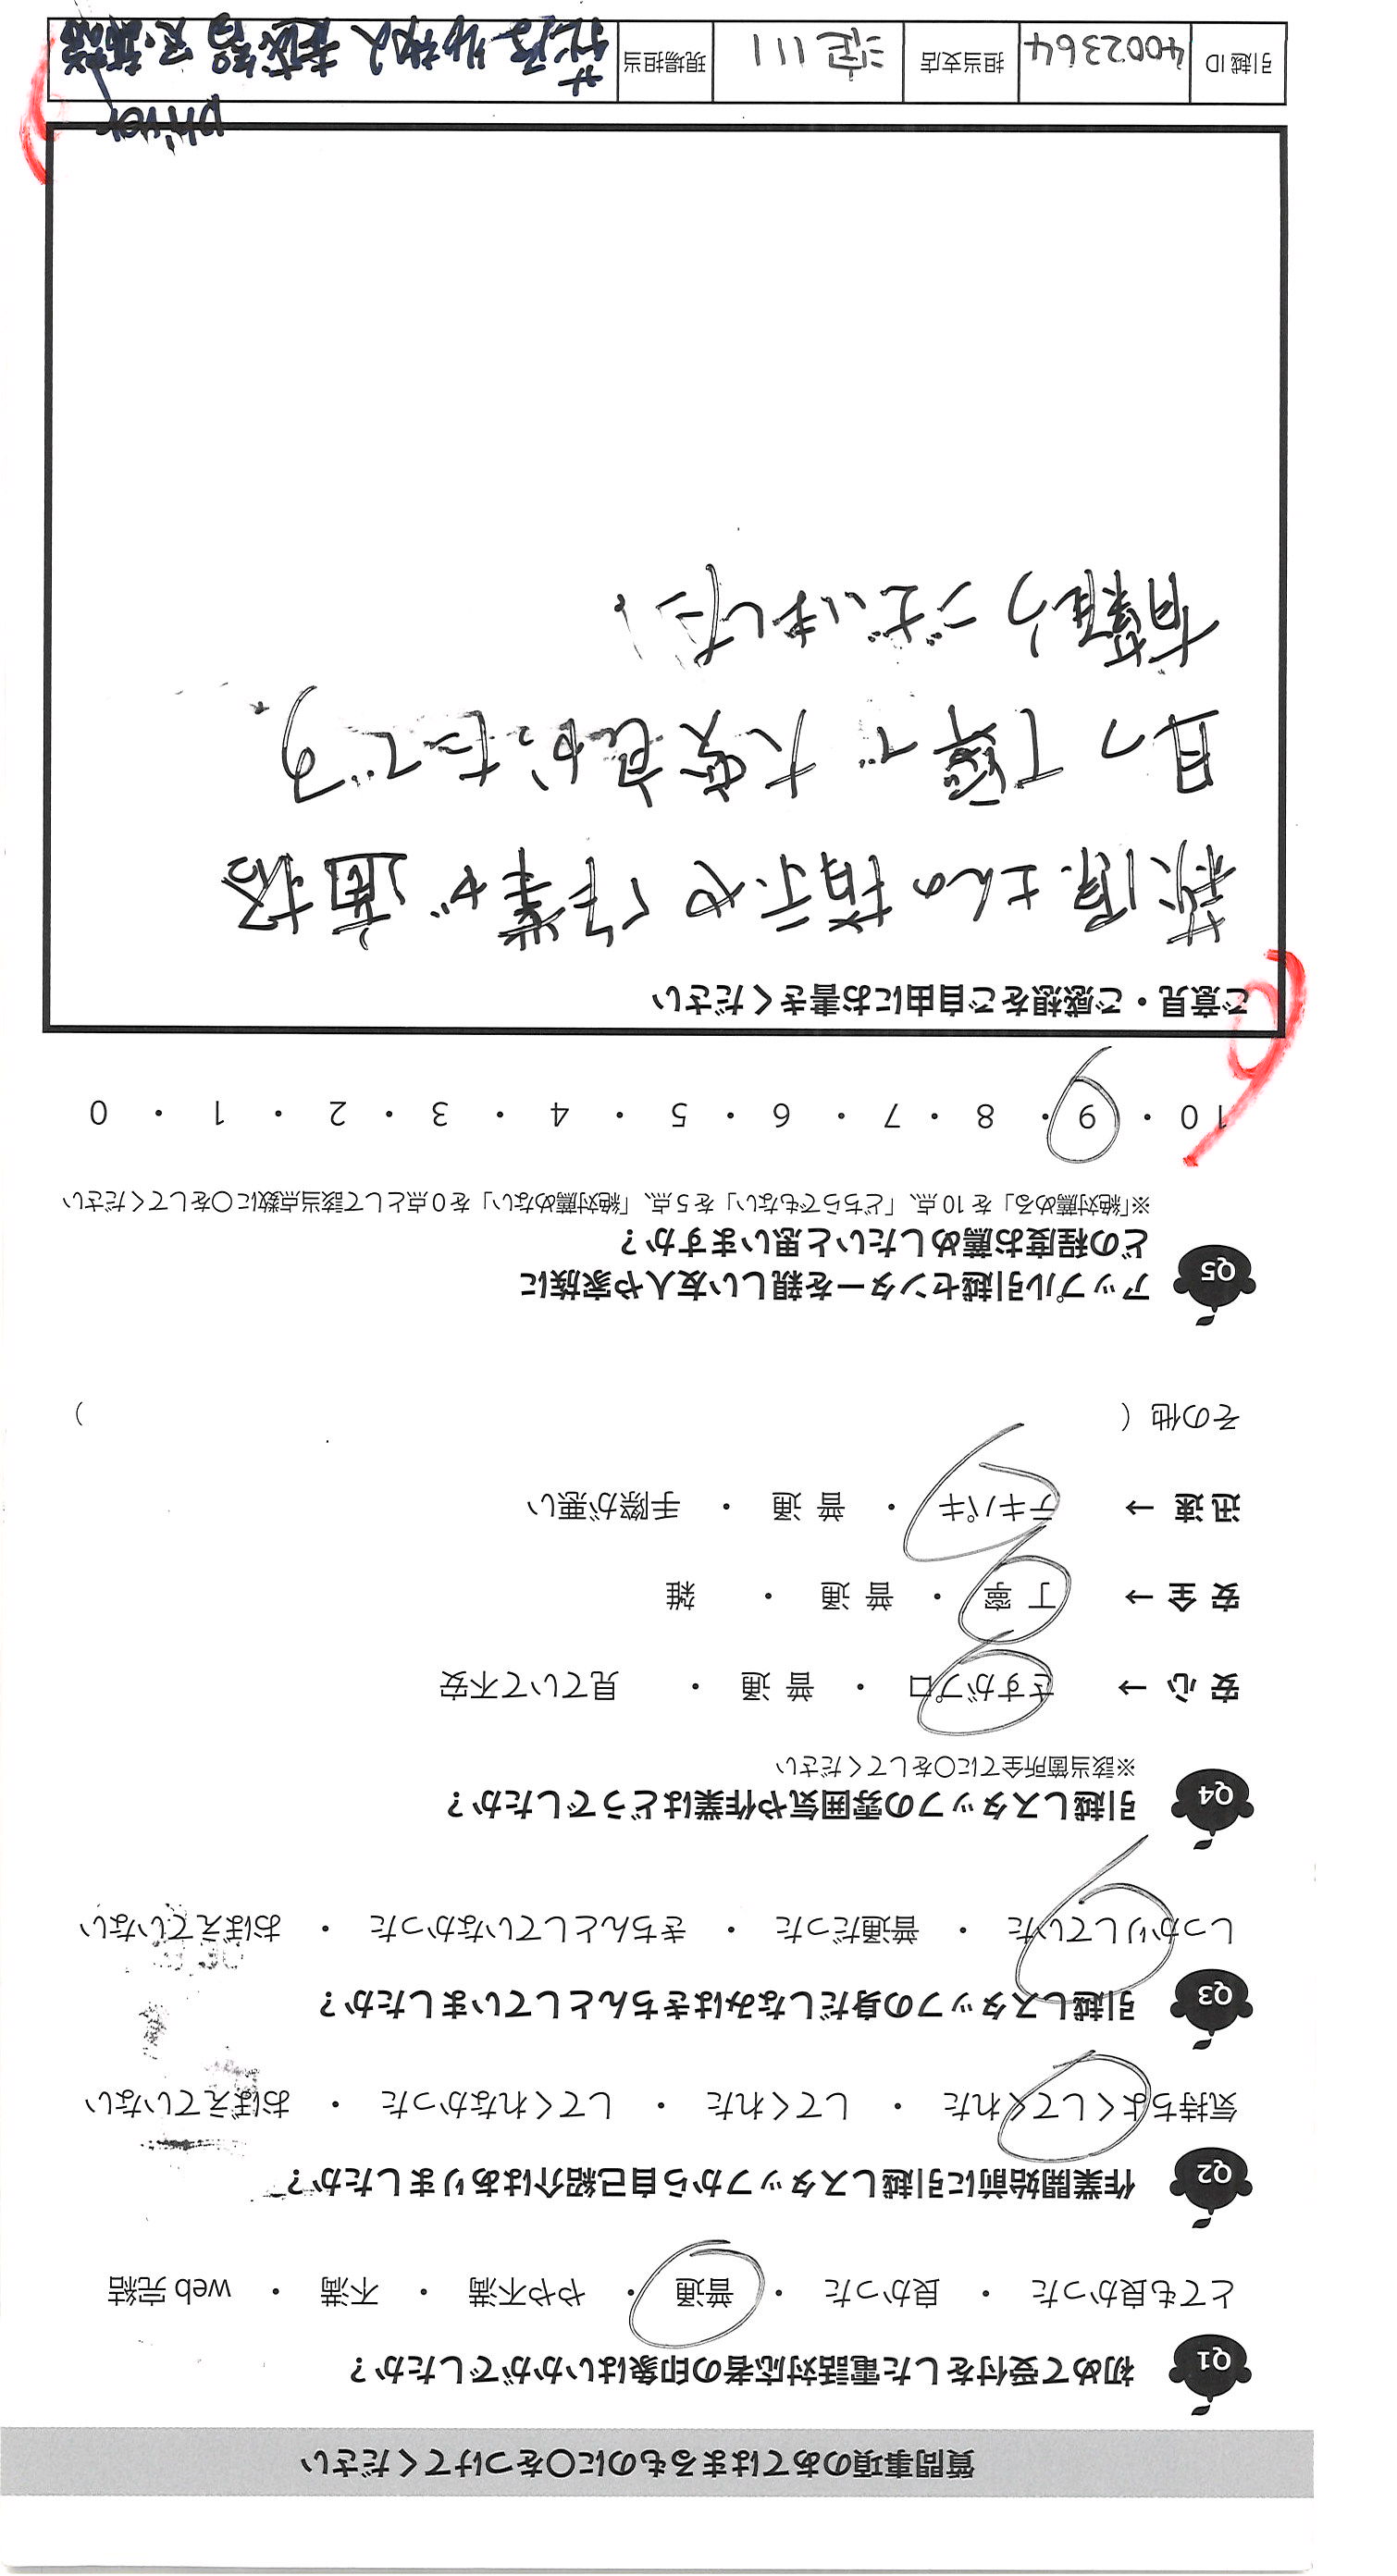 質問事項のあてはまるものに〇をつけてください
Q1 初めて受付をした電話対応者の印象はいかがでしたか？
とても良かった ・ 良かった ・ 普通 ・ やや不満 ・ 不満 ・ web 完結
Q2 作業開始前に引越しスタッフから自己紹介はありましたか？
気持ちよくしてくれた ・ してくれた ・ してくれなかった ・ おぼえていない
Q3 引越しスタッフの身だしなみはきちんとしていましたか？
しっかりしていた ・ 普通だった ・ きちんとしていなかった ・ おぼえていない
Q4 引越しスタッフの雰囲気や作業はどうでしたか？
※該当箇所全てに〇をしてください
安 心 → さすがプロ ・ 普 通 ・ 見ていて不安
安 全 → 丁 寧 ・ 普 通 ・ 雑
迅 速 → テキパキ ・ 普 通 ・ 手際が悪い
その他 （ ）
Q5 アップル引越センターを親しい友人や家族に
どの程度お薦めしたいと思いますか？
※「絶対薦める」を 10 点、「どちらでもない」を 5 点、「絶対薦めない」を 0 点として該当点数に〇をしてください
10 ・ 9 ・ 8 ・ 7 ・ 6 ・ 5 ・ 4 ・ 3 ・ 2 ・ 1 ・ 0
9
ご意見・ご感想をご自由にお書きください
萩原さんの指示や作業が適格
且つ丁寧で大変良かったです。
有難うございました。
driver
引越 ID 4002364 担当支店 淀川 現場担当